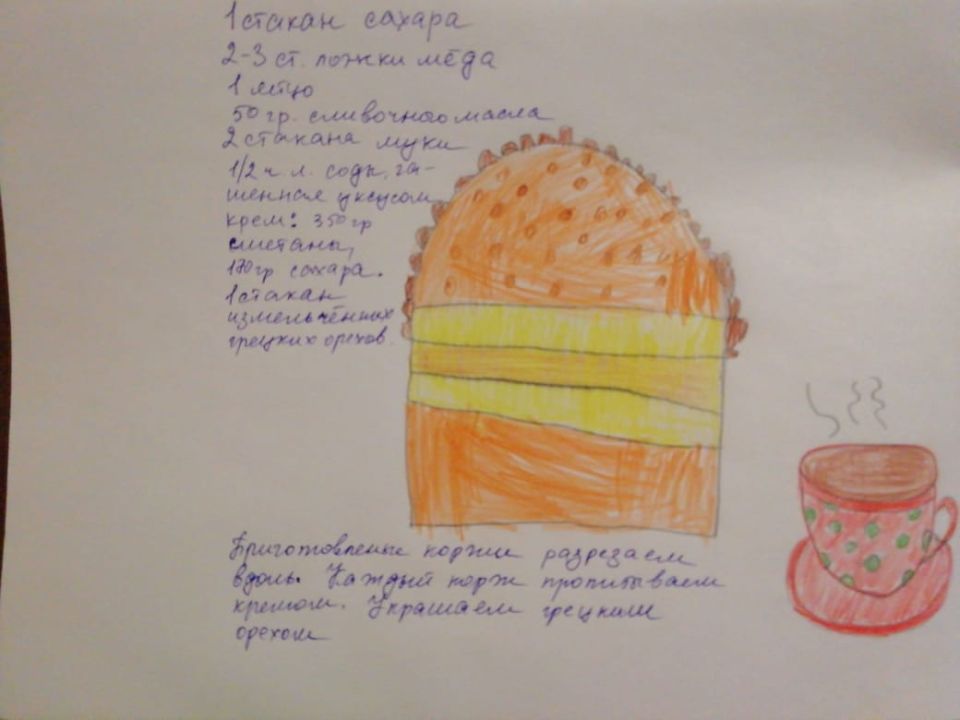 1 стакан сахара
2-3 ст. ложки мёда
1 яйцо
50 гр. сливочного масла
2 стакана муки
1/2 ч. л. соды, га-
шенная уксусом
крем: 350 гр
сметаны,
170 гр сахара.
1 стакан
измельчённых
грецких орехов.
Приготовленые коржи разрезаем
вдоль. Каждый корж пропитываем
кремом. Украшаем грецким
орехом